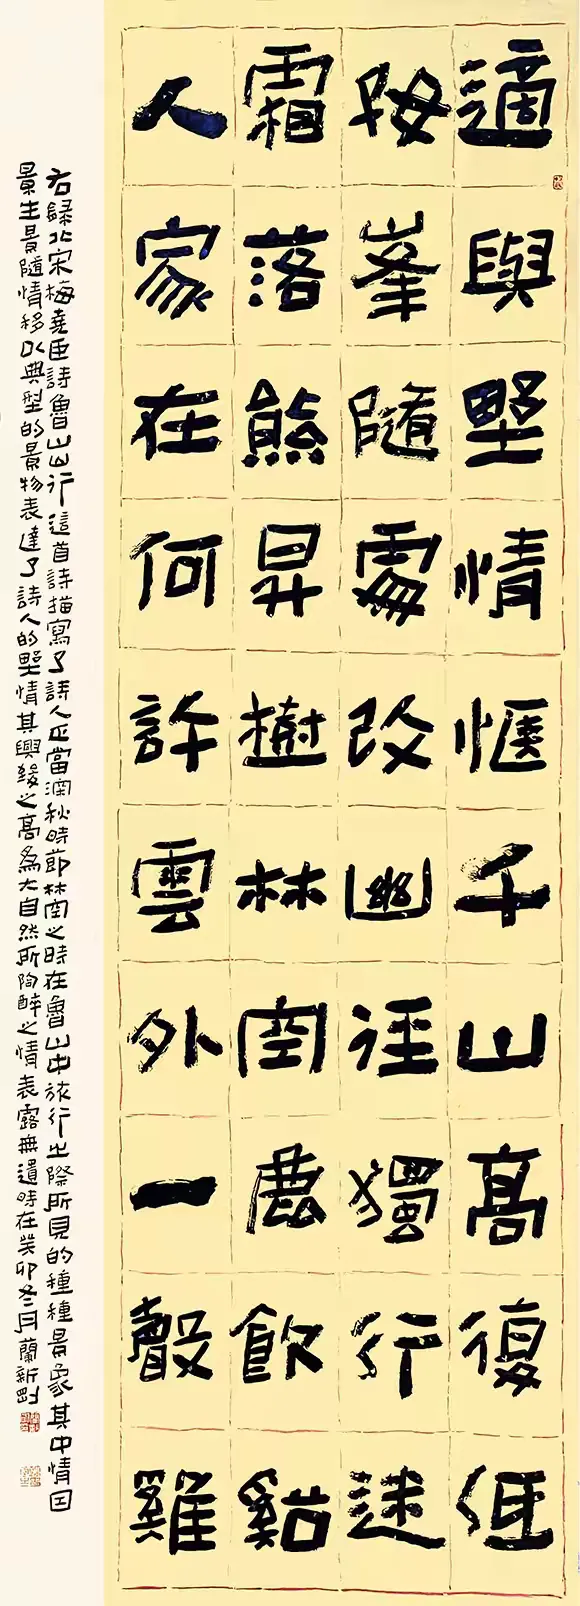 適與野情愜千山高復低
好峯隨處改幽徑獨行迷
霜落熊昇樹林空鹿飲谿
人家在何許雲外一聲雞
右録北宋梅堯臣詩魯山山行這首詩描寫了詩人正當深秋時節林空之時在魯山中旅行之際所見的種種景象其中情因
景生景隨情移以典型的景物表達了詩人的野情其興緻之高為大自然所陶醉之情表露無遺時在癸卯冬月蘭新剛